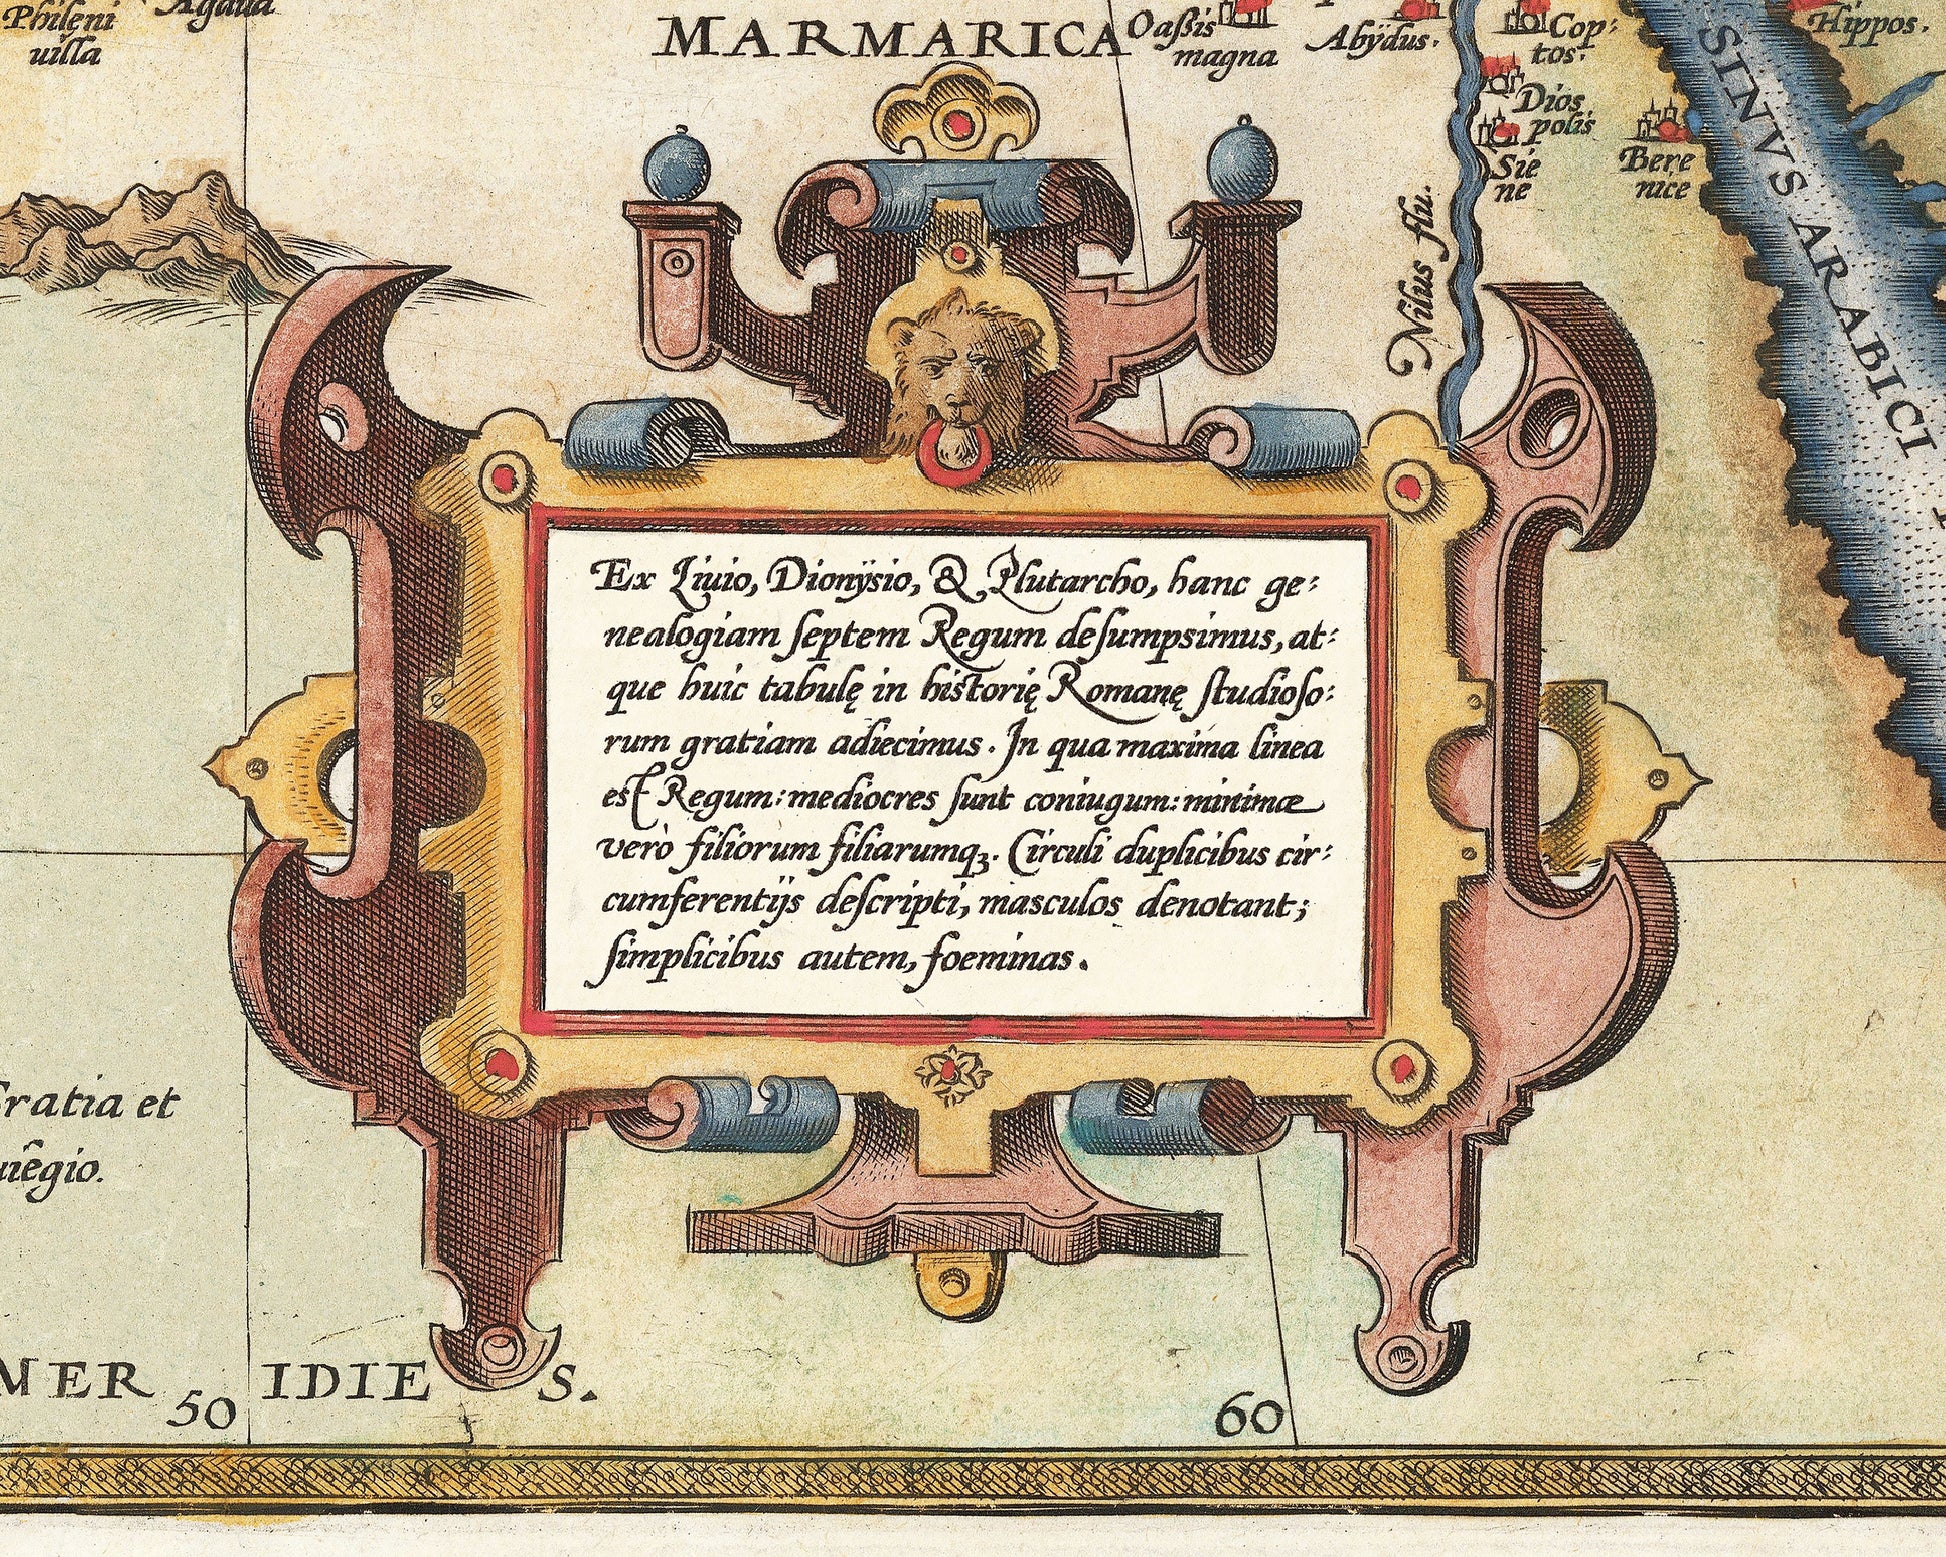 Phileni
uilla
MARMARICA
Oaſsis
magna
Abÿdus.
Cop:
tos.
Dios
polis
Sie
ne
Bere
nice
Hippos.
SINVS ARABICI
Nilus flu.
Ex Liuio, Dionÿsio, & Plutarcho, hanc ge:
nealogiam ſeptem Regum deſumpsimus, at:
que huic tabulę in historię Romanę ſtudioſo:
rum gratiam adiecimus. In qua maxima linea
est Regum: mediocres ſunt coniugum: minimæ
verò filiorum filiarumqꝫ. Circuli duplicibus cir:
cumferentijs deſcripti, masculos denotant;
ſimplicibus autem, foeminas.
Gratia et
uiêgio.
MERIDIES.
50
60